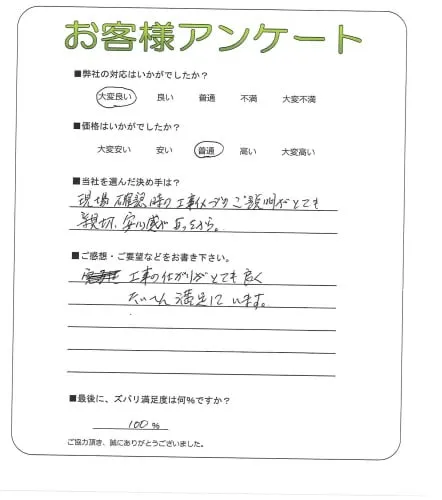 お客様アンケート
■弊社の対応はいかがでしたか？
大変良い 良い 普通 不満 大変不満
■価格はいかがでしたか？
大変安い 安い 普通 高い 大変高い
■当社を選んだ決め手は？
現場確認時の工事についてのご説明がとても
親切、安心感があったから。
■ご感想・ご要望などをお書き下さい。
工事の仕上がりがとても良く
たいへん満足しています。
■最後に、ズバリ満足度は何%ですか？
100%
ご協力頂き、誠にありがとうございました。